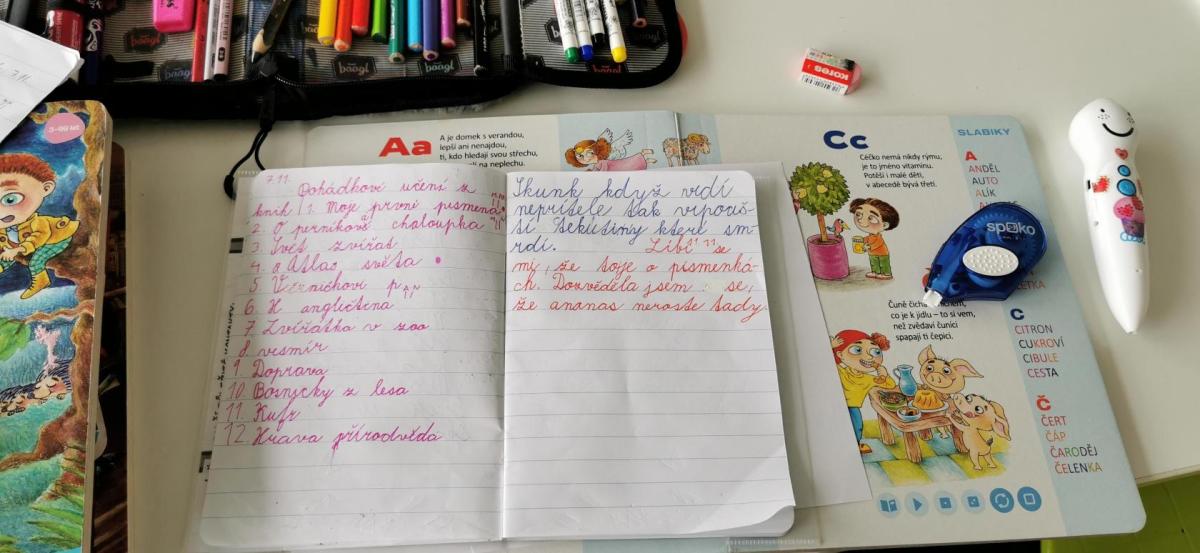 baagl
baagl
baagl
KORES
3-99 let
Aa
A je domek s verandou,
lepší ani nenajdou,
ti, kdo hledají svou střechu,
na neplechu.
Cc
Céčko nemá nikdy rýmu,
je to jméno vitamínu.
Potěší i malé děti,
v abecedě bývá třetí.
SLABIKY
A
ANDĚL
AUTO
ALÍK
7.11.
Pohádkové učení z
knih 1. Moje první písmena
2. O perníkové chaloupka
3. Svět zvířat
4. a Atlas světa
5.
6. H angličtena
7. Zvířátka v zoo
8. vesmír
9. Doprava
10. Bosnycky z lesa
11. Kufr
12. Hrava přírodvěda
Skunk když vidí
nepřítele tak vrpouš-
tí tekutiny které sm-
rdí. Líbí se
mi, že toje o písmenká-
ch. Dozvěděla jsem se,
že ananas neroste tady.
spoko
Čuně
co je k jídlu – to si všem,
než zvědaví čuníci
spapají ti čepici.
C
CITRON
CUKROVÍ
CIBULE
CESTA
Č
ČERT
ČÁP
ČARODĚJ
ČELENKA